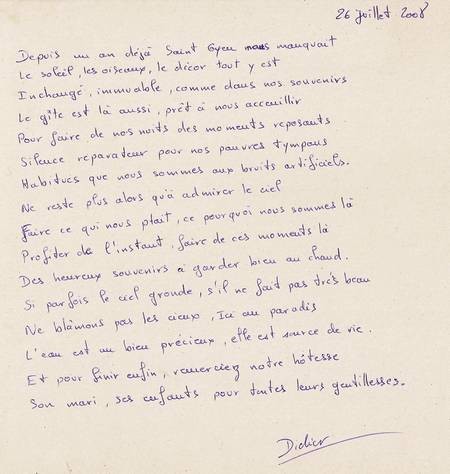 26 juillet 2008
Depuis un an déjà Saint Gyen nous manquait
Le soleil, les oiseaux, le décor tout y est
Inchangé, immuable, comme dans nos souvenirs
Le gîte est là aussi, prêt à nous acceuillir
Pour faire de nos nuits des moments reposants
Silence reparateur pour nos pauvres tympans
Habitues que nous sommes aux bruits artificiels.
Ne reste plus alors qu'à admirer le ciel
Faire ce qui nous plait, ce pourquoi nous sommes là
Profiter de l'instant, faire de ces moments là
Des heureux souvenirs à garder bien au chaud.
Si parfois le ciel gronde, s'il ne fait pas très beau
Ne blâmons pas les cieux, Ici au paradis
L'eau est un bien précieux, elle est source de vie.
Et pour finir enfin, remerciez notre hôtesse
Son mari, ses enfants pour toutes leurs gentillesses.
Didier